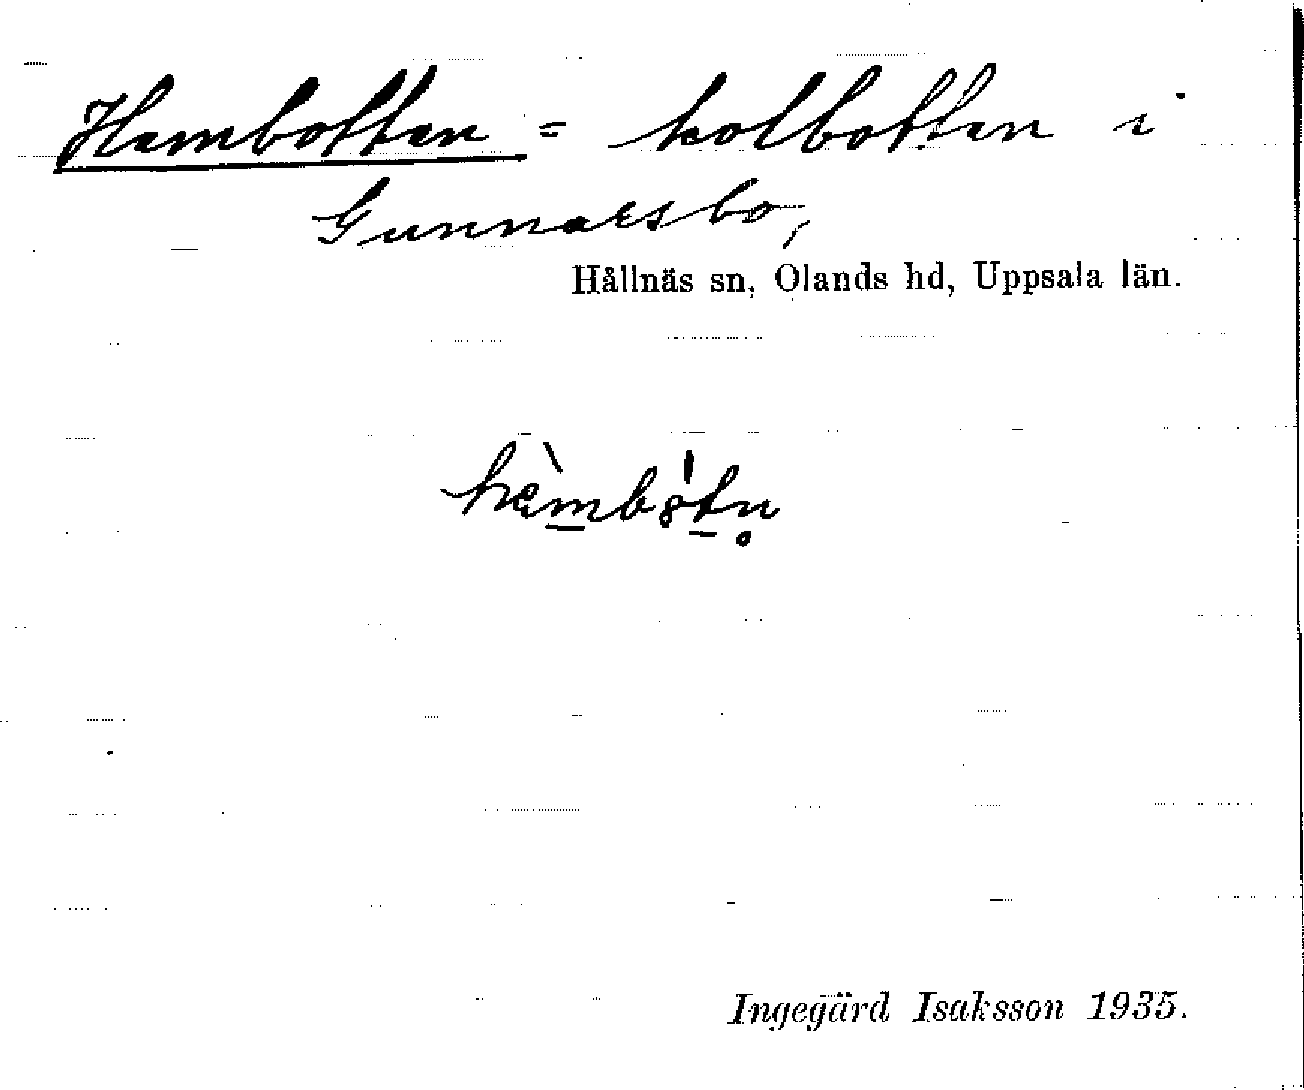 Hembotten = kolbotten i
Gunnarsbo,
Hållnäs sn, Olands hd, Uppsala län.
Ingegärd Isaksson 1935.